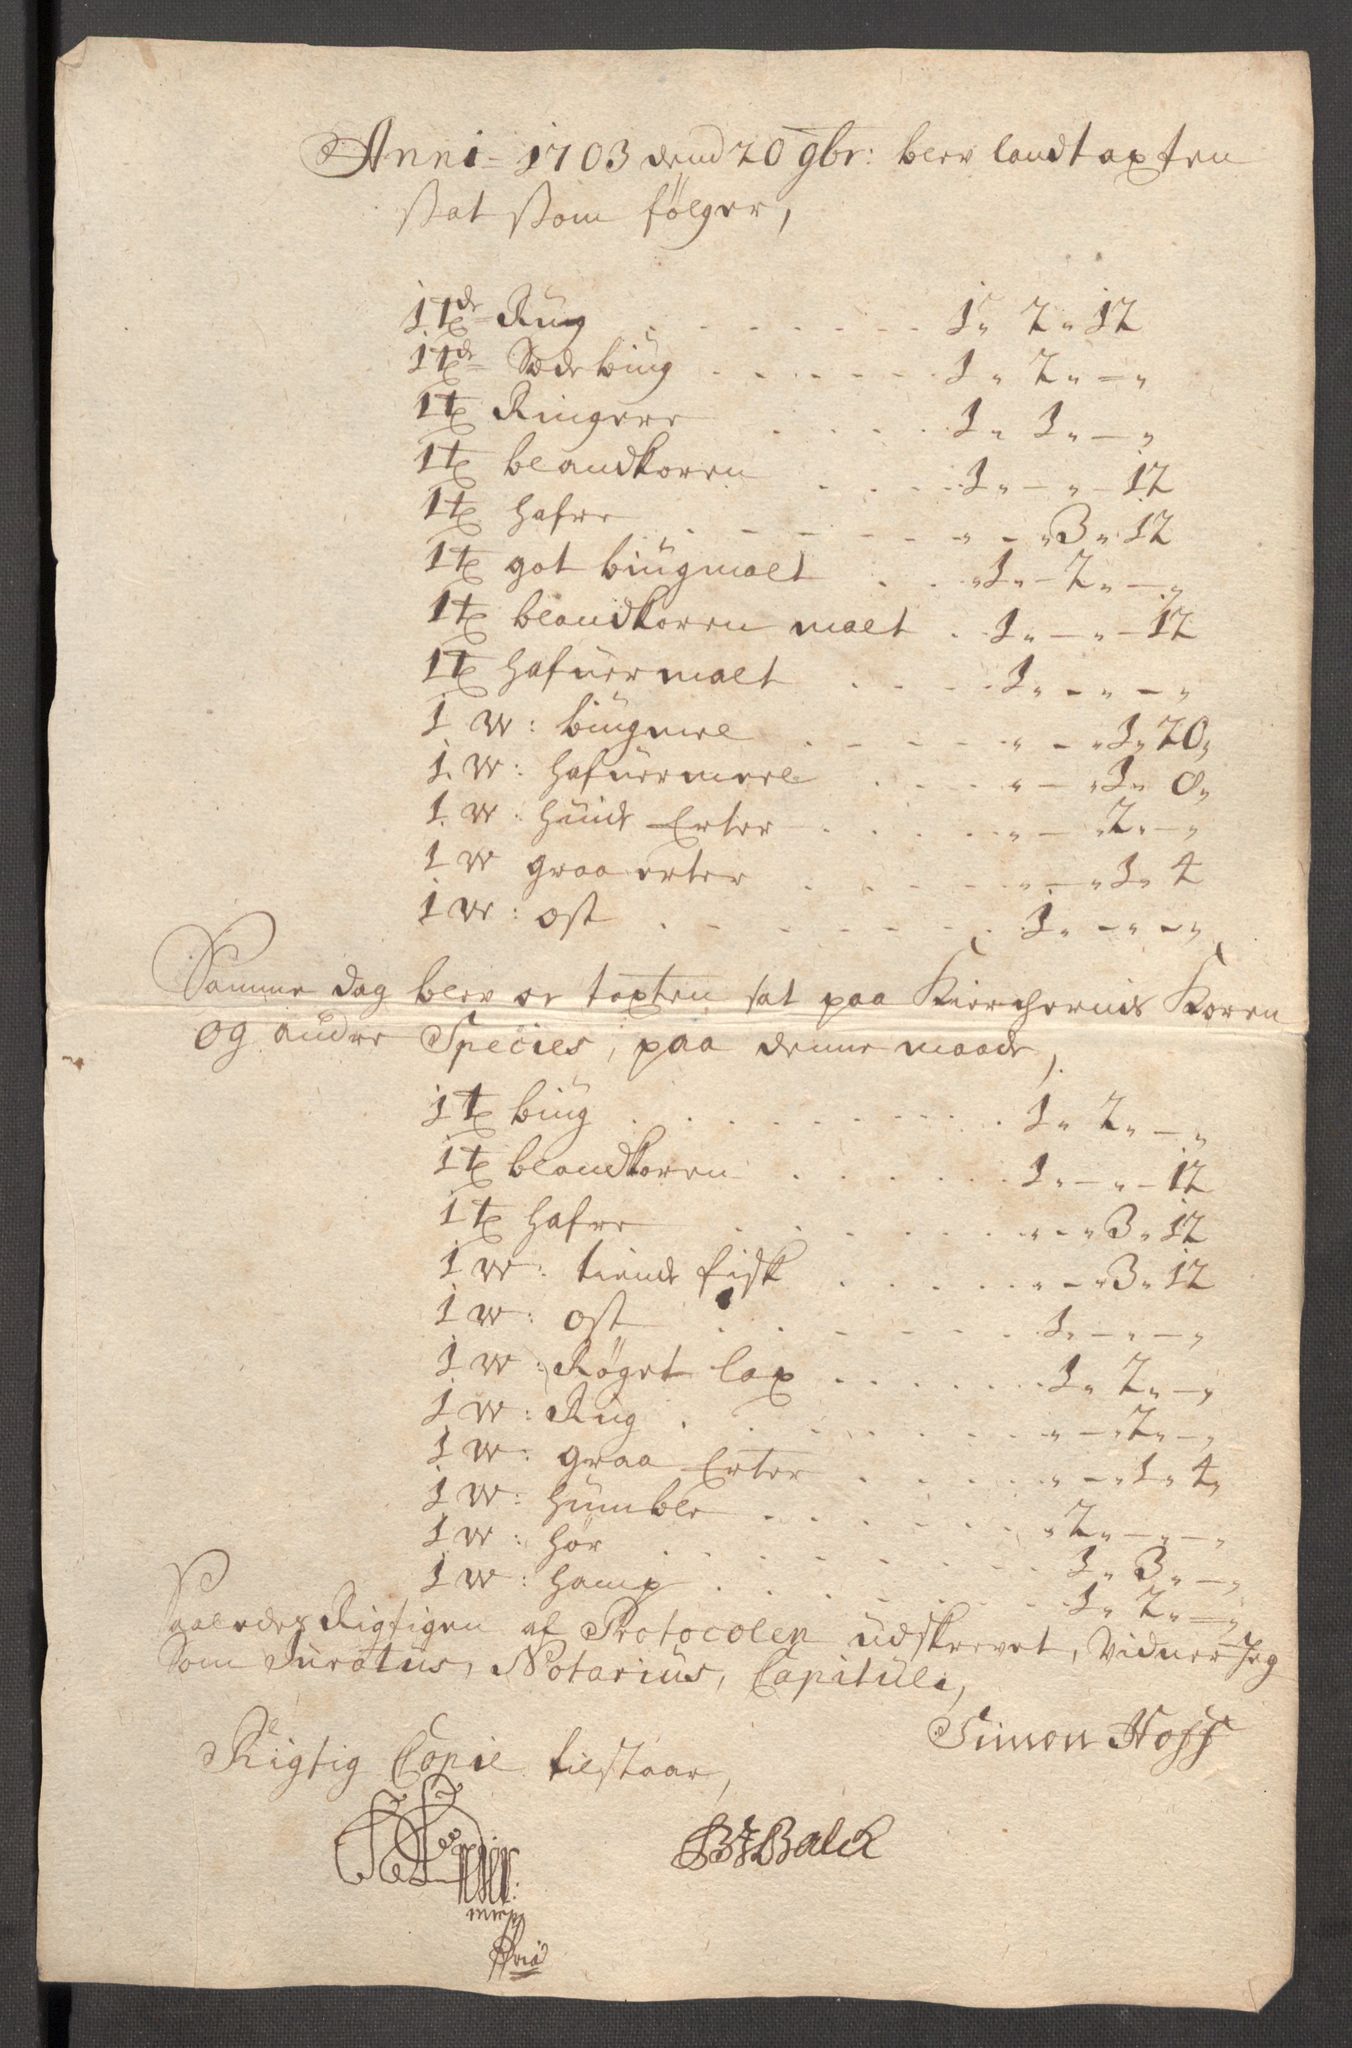 Anni - 1703 dend 20 9br: blev landtaxten
sat som følger,
1 tde Rug . . . . . . 1„ 2„ 12
1 tde Sæde biug . . . . . 1„ 2„ — „
1 t Ringere . . . . 1„ 1„ — „
1 t blandkoren . . . . 1„ — „ — 12
1 t hafre . - - - - - „ — „ 3„ 12
1 t got biugmalt . . . „ 1„ — 2„ — „
1 t blandkoren malt . . 1„ — „ — 12
1 t hafuermalt . . . . 1„ — „ — „
1 w: biugmel . - - - - „ — „ 1„ 20„
1 w: hafuermeel . . . . „ — „ 1„ 8„
1 w: huide Erter . . . . „ — „ 2„ — „
1 w graa erter . . . . „ — „ 1„ 4
1 w: ost . - - - - - - 1„ — „ — „
Samme dag blev oc taxten sat paa Kierchernis Koren
og andre Species, paa denne maade,
1 t biug . . . . . . . 1„ 2„ — „
1 t blandkoren . . . . . 1„ — „ — 12
1 t hafre . . . . . . „ „ 3„ 12
1 w: tiende fisk . . . . . „ — „ 3„ 12
1 w: ost . . - - - - - 1„ — „ — „
1 w: Røget lax . . . . . . 1„ 2„ — „
1 w: Rug . . . . . . . „ — „ 2„ — „
1 w: graa Erter . . . . . „ — „ 1„ 4„
1 w: humble . . . . . . „ 2„ — „ — „
1 w: hør . . . . . . . 1„ 3„ — „
1 w: hamp . . . . . . 1„ 2„ — „
Saaledes Rigtigen af Protocolen udskrevet, Vidner Jeg
Som Juratus, Notarius, Capituli,
Simon Hoff
Rigtig Copie tilstaar,
Balck
mpp